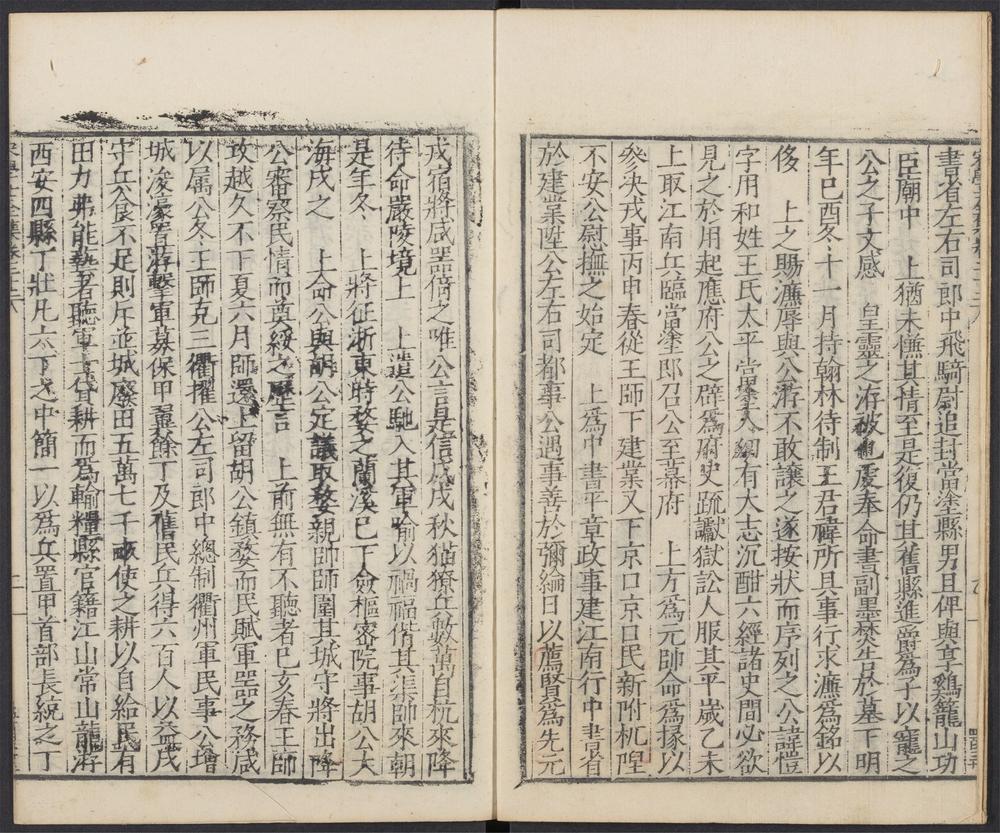 書省左右司郎中飛騎尉追封當塗縣男且俾與享雞籠山功
臣廟中　上猶未慊其情至是復仍其舊縣進爵為子以寵之
公之子文感　皇靈之游被也虔奉命書副墨焚告於墓下明
年巳酉冬十一月持翰林待制王君禕所具事行求濂為銘以
侈　上之賜濂辱與公游不敢讓之遂按狀而序列之公諱愷
字用和姓王氏太平當塗人細有大志沉酣六經諸史間必欲
見之於用起應府公之辟為府史疏讞獄訟人服其平歲乙未
上取江南兵臨當塗即召公至幕府　上方為元帥命為掾以
參決戎事丙申春從王師下建業又下京口京口民新附杌隉
不安公慰撫之始定　上為中書平章政事建江南行中書省
於建業陞公左右司都事公遇事善於彌綸日以薦賢為先元
戎宿將咸器倚之唯公言是信戊戌秋猫獠兵數萬自杭來降
待命嚴陵境上　上遣公馳入其軍喻以禍福偕其渠帥來朝
是年冬　上將征浙東時婺之蘭溪巳下僉樞密院事胡公大
海戍之　上命公與胡公定議取婺親帥師圍其城守將出降
公審察民情而奠綏之歷言　上前無有不聽者巳亥春王師
攻越久不下夏六月師還上留胡公鎮婺而民賦軍器之務咸
以屬公冬王師克三衢擢公左司郎中總制衢州軍民事公增
城浚濠置游擊軍募保甲翼餘丁及舊民兵得六百人以益戍
守兵食不足則斥並城廢田五萬七千畝使之耕以自給民有
田力弗能藝者聽軍士貸耕而為輸糧縣官籍江山常山龍游
西安四縣丁壯凡六丁之中簡一以為兵置甲首部長統之丁